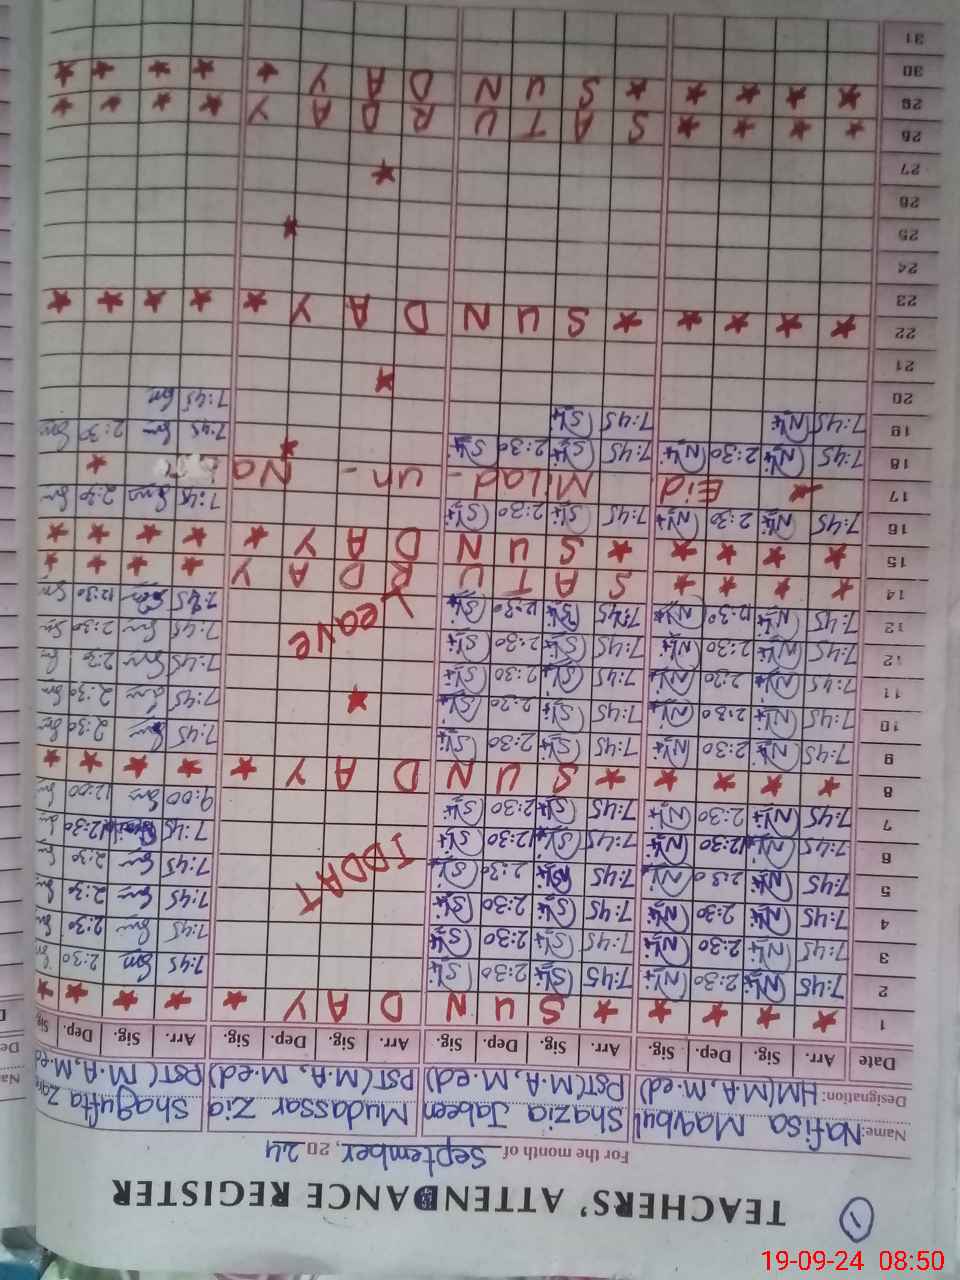 1
TEACHERS' ATTENDANCE REGISTER
For the month of September, 2024
Name: Nafisa Maqbul Shazia Jabeen Mudassar Zia Shagufta
Designation: HM(M.A, M.ed) PST(M.A, M.ed) PST(M.A, M.ed) PST(M.A, M.ed
Date Arr. Sig. Dep. Sig. Arr. Sig. Dep. Sig. Arr. Sig. Dep. Sig. Arr. Sig. Dep. Sig.
1 S U N D A Y
2 7:45 2:30 7:45 2:30 7:45 2:30
3 7:45 2:30 7:45 2:30 7:45 2:30
4 7:45 2:30 7:45 2:30 7:45 2:30
5 7:45 2:30 7:45 2:30 IDDAT 7:45 2:30
6 7:45 12:30 7:45 12:30 7:45 12:30
7 7:45 2:30 7:45 2:30 9:00 12:00
8 S U N D A Y
9 7:45 2:30 7:45 2:30 7:45 2:30
10 7:45 2:30 7:45 2:30 7:45 2:30
11 7:45 2:30 7:45 2:30 7:45 2:30
12 7:45 2:30 7:45 2:30 Leave 7:45 2:30
12 7:45 12:30 7:45 12:30 7:45 12:30
14 S A T U R D A Y
15 S U N D A Y
16 7:45 2:30 7:45 2:30 7:45 2:30
17 Eid Milad - un - Na
18 7:45 2:30 7:45 2:30 7:45 2:30
19 7:45 7:45 7:45
20
21
22 S U N D A Y
23
24
25
26
27
28 S A T U R D A Y
29 S U N D A Y
30
31
19-09-24 08:50